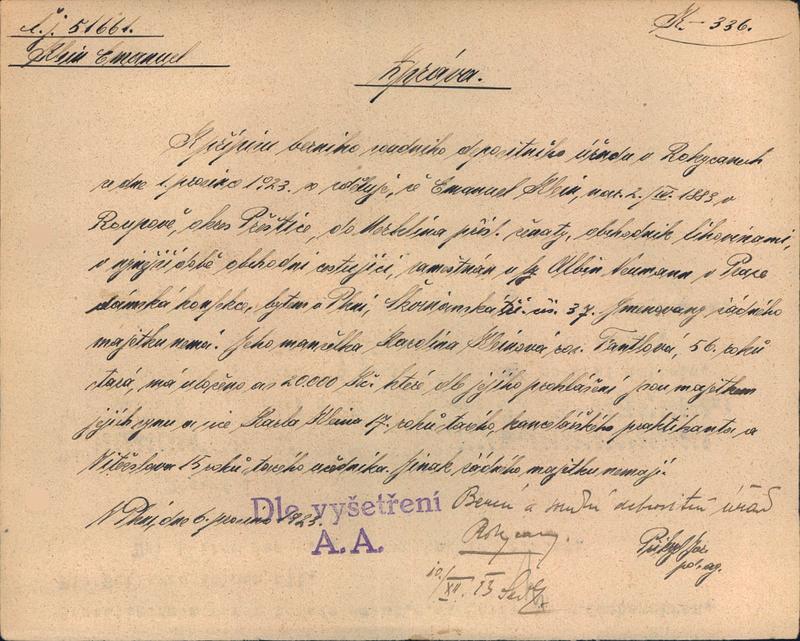 č.j. 51661.
K – 336.
Klein Emanuel
Zpráva.
K přípisu berního soudního depositního úřadu v Rokycanech
ze dne 1. prosince 1923 se sděluje, že Emanuel Klein, nar. 2./IV. 1883 v
Roupově, okres Přeštice, do Merklína přísl. ženatý, obchodník lihovinami,
v nynější době obchodní cestující, zaměstnán u fy Albin Neumann v Praze
dámská konfekce, bytem v Plzni, Škrnianská tř. čís. 37. Jmenovaný žádného
majetku nemá. Jeho manželka Karolina Kleinová roz. Fantlová, 56 roků
stará, má uloženo as 20.000 Kč. které dle jejího prohlášení jsou majetkem
jejich synů a sice Karla Kleina 17. roků starého, kancelářského praktikanta a
Vítězslava 15 roků starého učedníka. Jinak žádného majetku nemají.
V Plzni, dne 6. prosince 1923.
Dle vyšetření
A.A.
Berní a soudní depositní úřad
Rokycany.
pol. ag.
10./XII. 23